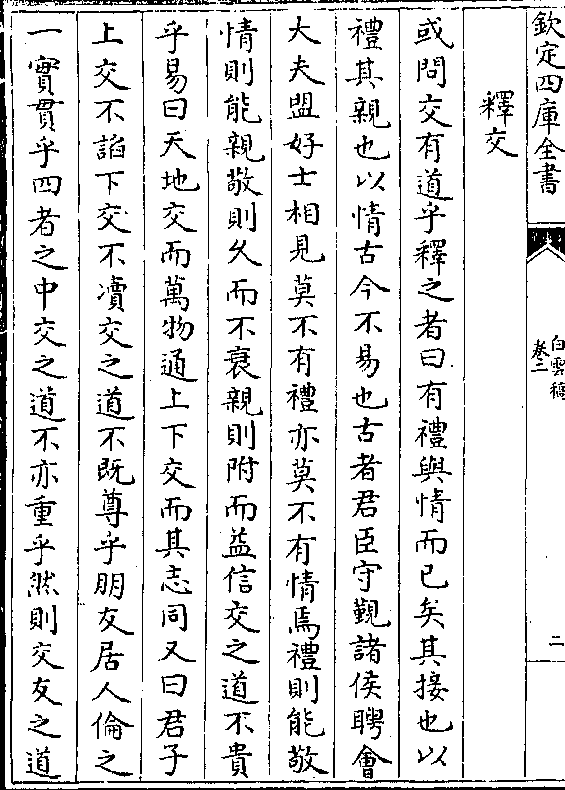 欽定四庫全書
白雲稿
卷二
二
釋交
或問交有道乎釋之者曰有禮與情而已矣其接也以
禮其親也以情古今不易也古者君臣守覲諸侯聘會
大夫盟好士相見莫不有禮亦莫不有情焉禮則能敬
情則能親敬則久而不衰親則附而益信交之道不貴
乎易曰天地交而萬物通上下交而其志同又曰君子
上交不諂下交不瀆交之道不既尊乎朋友居人倫之
一實貫乎四者之中交之道不亦重乎然則交友之道